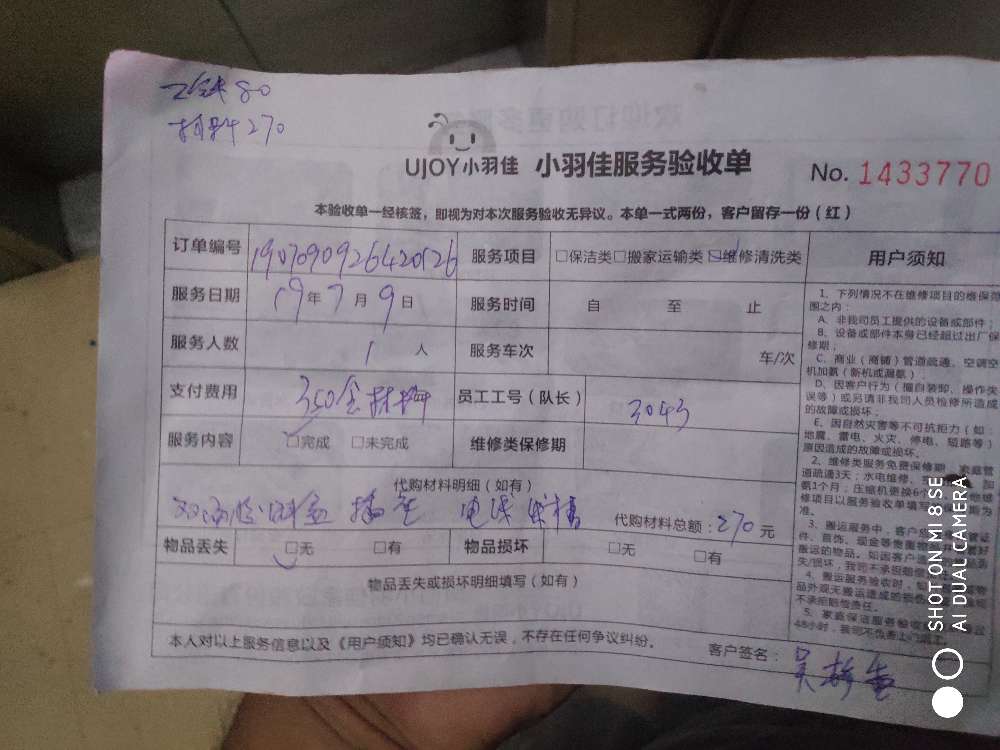 工钱80
材料270
UJOY小羽佳 小羽佳服务验收单 No. 1433770
本验收单一经核签，即视为对本次服务验收无异议。本单一式两份，客户留存一份（红）
订单编号 服务项目 □保洁类□搬家运输类☑维修清洗类 用户须知
服务日期 19年7月9日 服务时间 自 至 止
服务人数 1人 服务车次 车/次
支付费用 350含材料 员工工号（队长） 3043
服务内容 ☑完成 □未完成 维修类保修期
代购材料明细（如有）
插座 电线 代购材料总额：270元
物品丢失 ☑无 □有 物品损坏 □无 □有
物品丢失或损坏明细填写（如有）
本人对以上服务信息以及《用户须知》均已确认无误，不存在任何争议纠纷。 客户签名：吴
1、下列情况不在维修项目的维保范
围之内：
A、非我司员工提供的设备或部件；
B、设备或部件本身已经超过出厂保
修期；
C、商业（商铺）管道疏通、空调空
机加氨（新机或漏氨）
D、因客户行为（擅自装卸、操作失
误等）或另请非我司人员检修所造成
的故障或损坏；
E、因自然灾害等不可抗拒力（如：
地震、雷电、火灾、停电、短路等）
原因造成的故障或损坏。
2、维修类服务免费保修期：家庭管
道疏通3天；水电维修、
氨1个月；压缩机更换6个
修项目以服务验收单填写
准。
3、搬运服务中，客户
件、首饰、现金等贵重物
搬运的物品。如因客户
失/损坏，我司不承担赔偿
4、搬运服务验收时，
品外观无搬运造成的损
不承担赔偿责任。
5、家庭保洁服务验收
48小时，我司不负责上门返工。
SHOT ON MI 8 SE
AI DUAL CAMERA